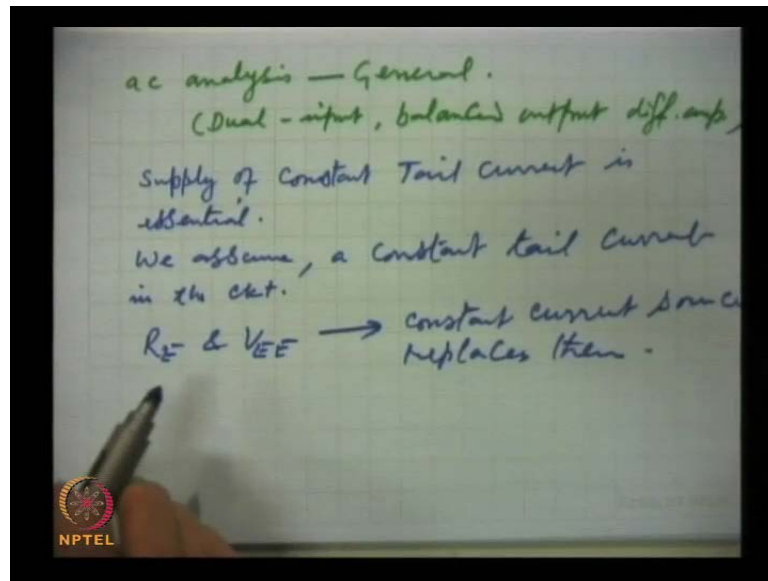 ac analysis — General.
(Dual-input, balanced output diff. amp,
Supply of Constant Tail Current is
essential.
We assume, a constant tail current
in the ckt.
RE & VEE → constant current source
replaces them.
NPTEL